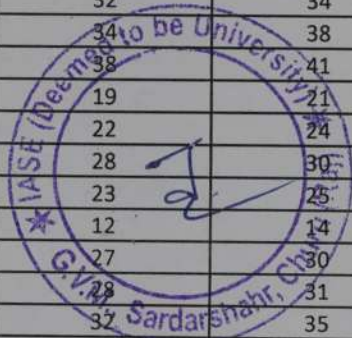 32 34
34 38
38 41
19 21
22 24
28 30
23 25
12 14
27 30
28 31
32 35
★ IASE (Deemed to be University) ★
G.V.M. Sardarshahr, Churu